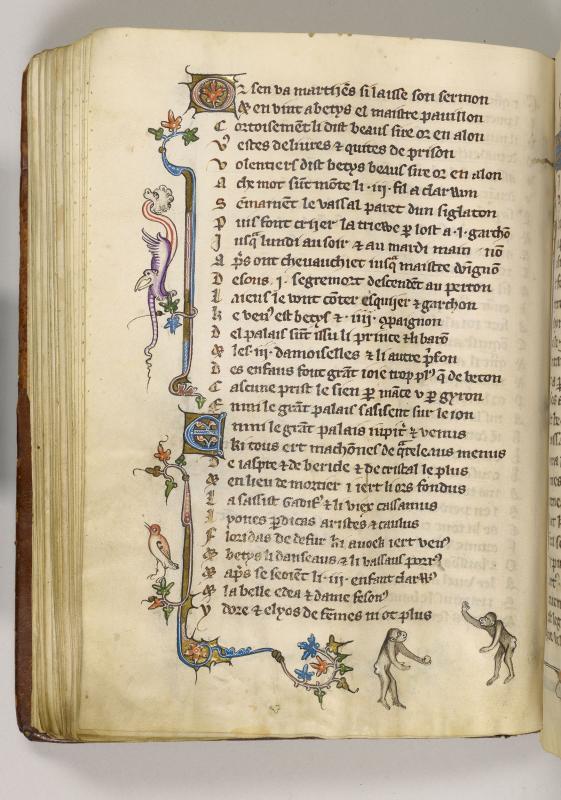 Or sen va martiiens si laisse son sermon
& en vint a betys el maistre pauillon
Cortoisemẽt li dist beaus sire or en alon
Vꝰ estes deliures & quites de prison
Volentiers dist betys beaus sire or en alon
A che mot sũt mõte li .iii. fil a claruon
Semainẽt le vassal paret dun siglaton
Puis font crijer la triewe p̱ lost a .i. garchõ
Jusq̃ lundi au soir & au mardi main nõ
Ap̃s ont cheuauchiet iusq̃ maistre dõgnõ
Desous .i. segremort descendẽt au perron
Laiens le vont cõter esquijer & garchon
Ke venꝰ est betys & .iiii. ꝯpaignon
Del palais sũt issu li prince & li barõ
& les .iii. damoiselles & li autre p̃son
Des enfans font grãt ioie trop plꝰ q̃ de beton
Cascune prist le sien p̱ mãce v p̱ gyron
Enmi le grãt palais sasisent sur le ion
Enmi le grãt palais iupit̃ & venus
Ki tous ert machõnes de q̃relenus menus
De iaspre & de bericle & de cristal le plus
& en lieu de mortier i iert li ors fondus
La sassist Gadifꝰ & li viex cassamus
Lyones p̱dicas aristes & caulus
Floridas de defur ki auoek iert venꝰ
& betys li danseaus & li vassaus porrꝰ
& ap̃s se seoiẽt li .iii. enfant clarꝰ
& la belle edea & dame fesonꝰ
Ydore & elyos de fẽmes ni ot plus